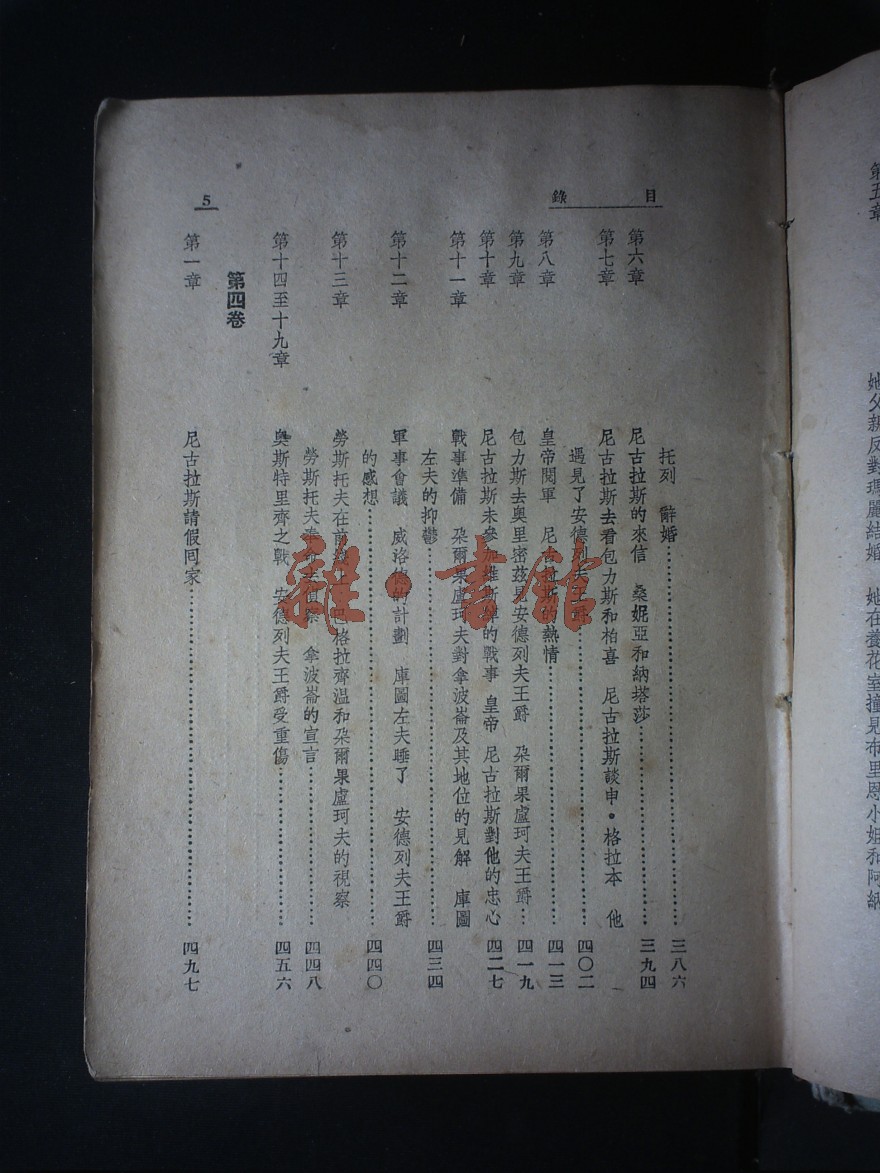 第五章
她父親反對瑪麗結婚 她在養花室撞見布里恩小姐和阿納
目錄
托列 辭婚……三八六
第六章 尼古拉斯的來信 桑妮亞和納塔莎……三九四
第七章 尼古拉斯去看包力斯和柏喜 尼古拉斯談申·格拉本 他
遇見了安德列夫王爵……四〇二
第八章 皇帝閱軍 尼古拉斯的熱情……四一三
第九章 包力斯去奧里密茲見安德列夫王爵 朶爾果盧珂夫王爵……四一九
第十章 尼古拉斯未參加維斯焯的戰事 皇帝 尼古拉斯對他的忠心 四二七
第十一章 戰事準備 朶爾果盧珂夫對拿波崙及其地位的見解 庫圖
左夫的抑鬱……四三四
第十二章 軍事會議 威洛德的計劃 庫圖左夫睡了 安德列夫王爵
的感想……四四〇
第十三章 勞斯托夫在前線上 巴格拉齊溫和朶爾果盧珂夫的視察
勞斯托夫奉命去偵察 拿波崙的宣言……四四八
第十四至十九章 奧斯特里齊之戰 安德列夫王爵受重傷……四五六
第四卷
第一章 尼古拉斯請假囘家……四九七
5
雜·書館